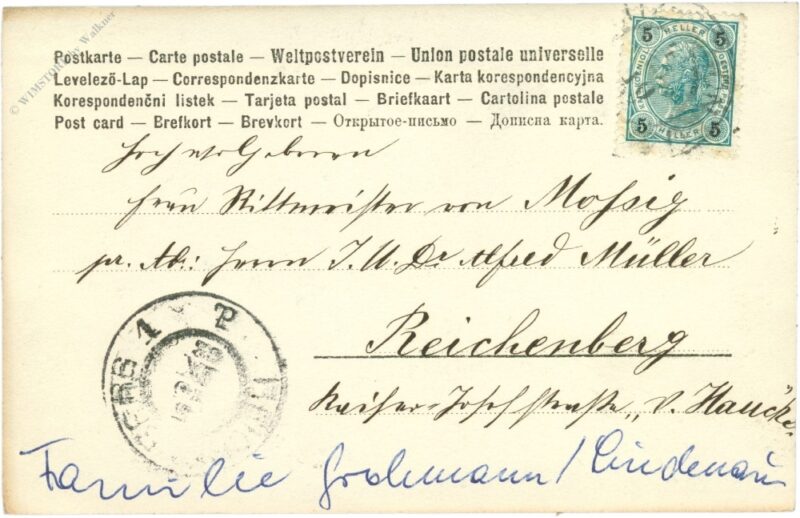 © WIMSTORE by Walkner
Postkarte — Carte postale — Weltpostverein — Union postale universelle
Levelező-Lap — Correspondenzkarte — Dopisnice — Karta korespondencyjna
Korespondenční listek — Tarjeta postal — Briefkaart — Cartolina postale
Post card — Brefkort — Brevkort — Открытое-письмо — Дописна карта.
5 HELLER 5
5 HELLER 5
Hochwolgeboren
Frau Rittmeister von Mossig
pr. Ad.: Herrn J. U. Dr Alfred Müller
Reichenberg
Kaiser-Josefstraße „v. Hauck
1
Familie Grohmann/Lindenau